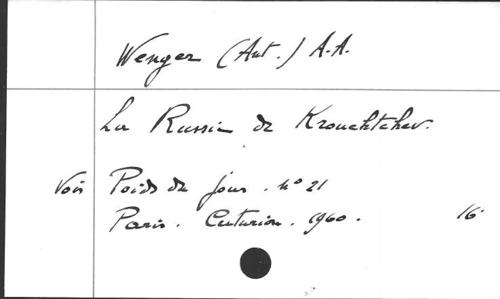 Wenger (Ant.) A.A.
La Russie de Krouchtchev.
Voir Poids du jour. nº 21
Paris. Centurion. 1960. 16º